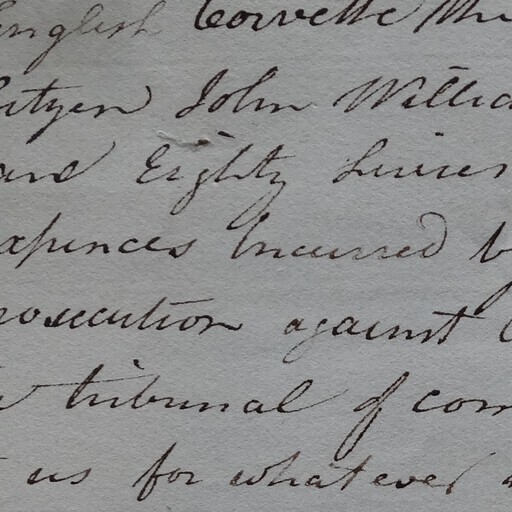 English Corvette
John
and Eighty Livres
expences incurred
prosecution against
tribunal of com
us for whatever